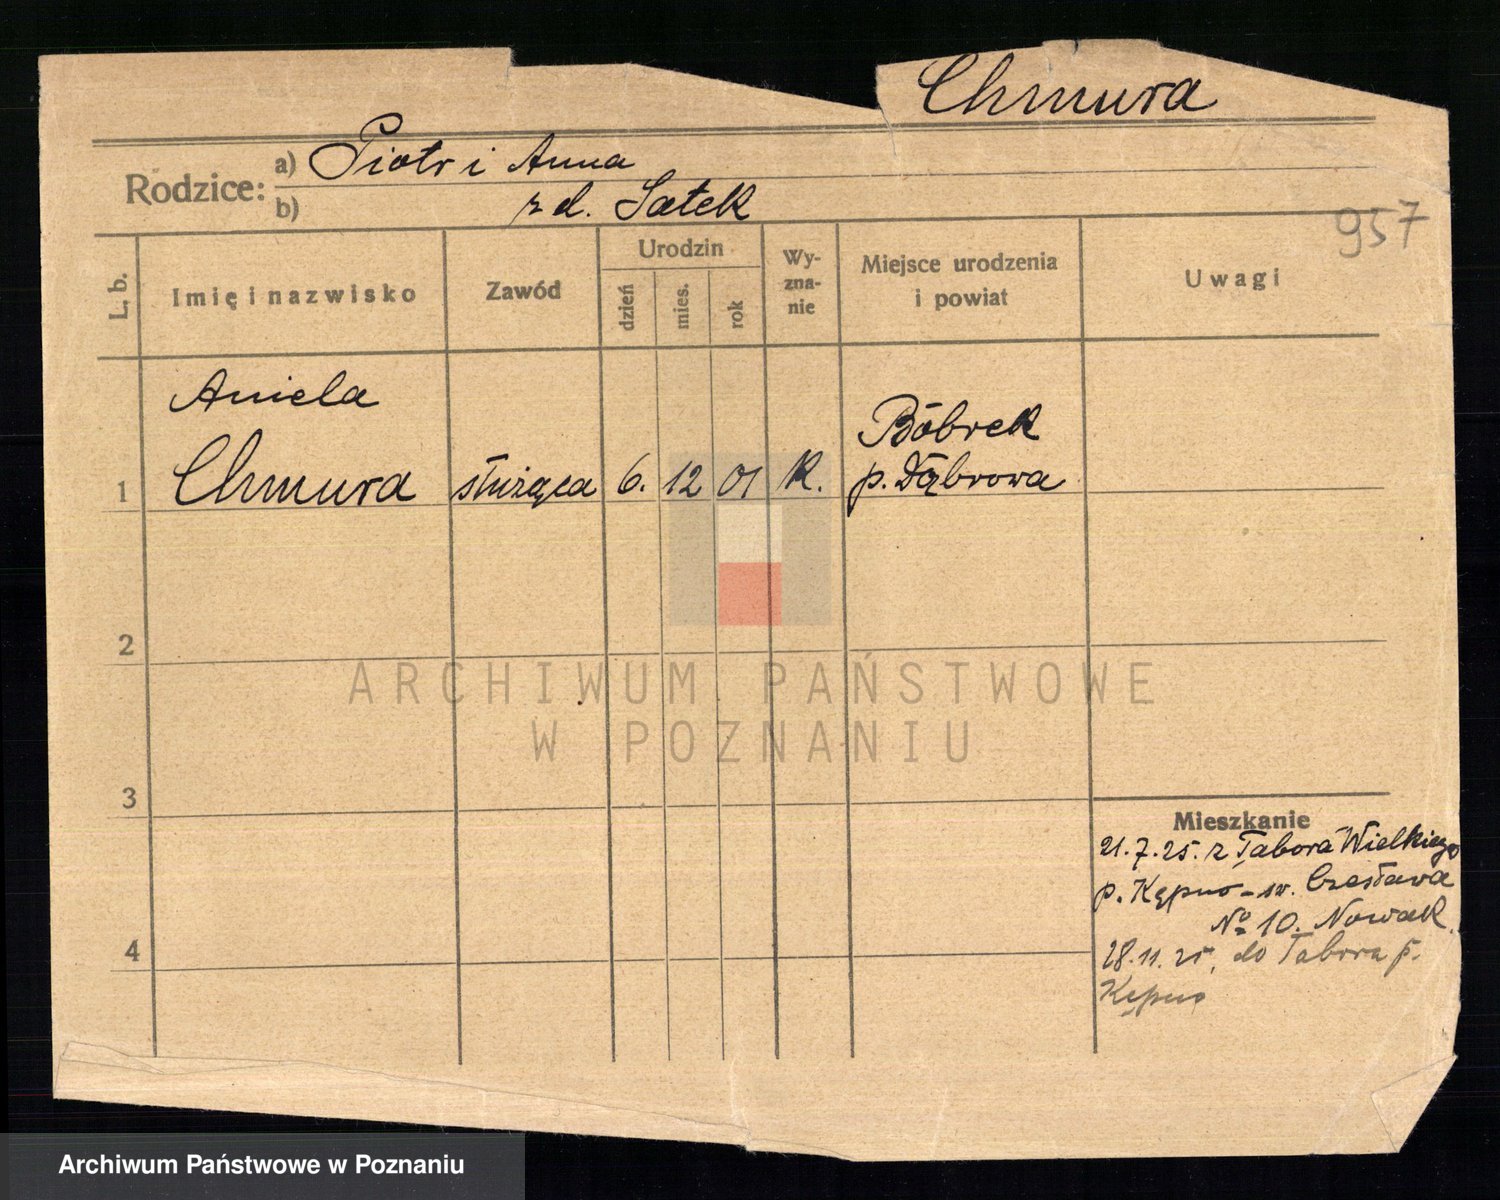 Chmura
Rodzice: a) Piotr i Anna
b) z d. Satek
957
L. b.
Imię i nazwisko
Zawód
Urodzin
dzień
mies.
rok
Wy-
zna-
nie
Miejsce urodzenia
i powiat
Uwagi
Aniela
Chmura
1
służąca
6.
12
01
k.
Bóbrek
p. Dąbrowa
2
3
4
Mieszkanie
21.7.25. z Tabora Wielkiego
p. Kępno - św. Czesława
No 10. Nowak.
28.11.25. do Tabora p.
Kępno
ARCHIWUM PAŃSTWOWE
W POZNANIU
Archiwum Państwowe w Poznaniu